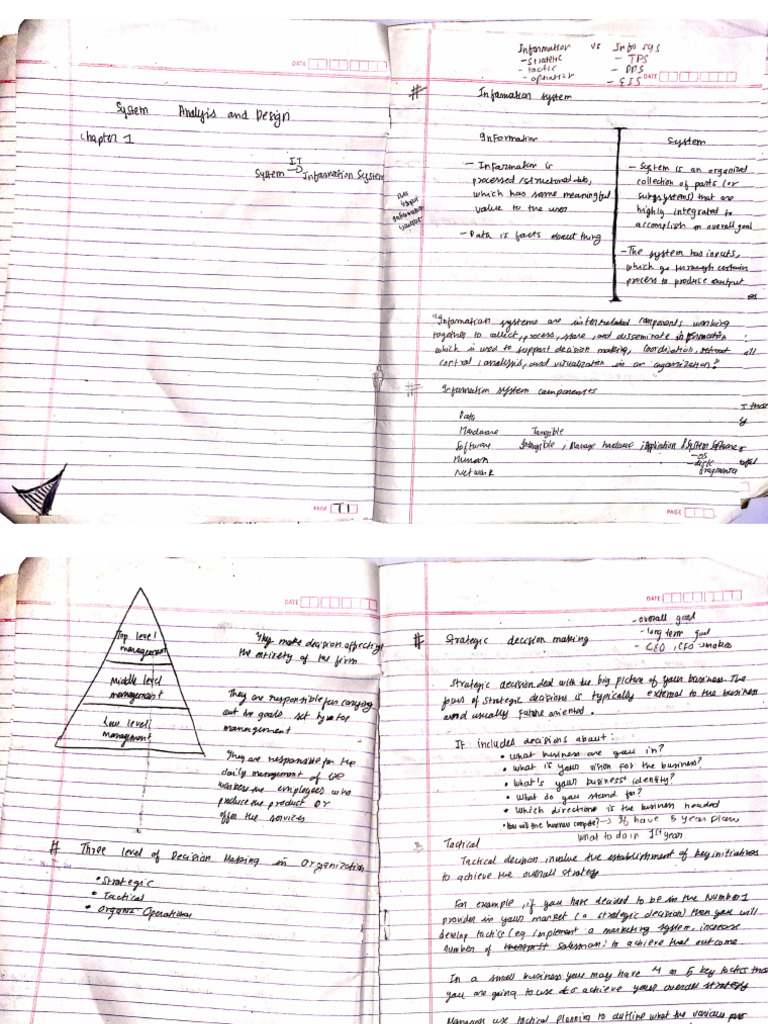 DATE
System Analysis and Design
Chapter 1
IT
System → Information System
PAGE T1
Information vs Info sys
- strateic - TPS
- tactic
- operatior - EIS
DATE
# Information system
Information
- Information is
processed/structured data,
which has some meaningful
value to the user
- Data is facts about thing
System
- System is an organized
collection of parts (or
subsystems) that are
highly integrated to
accomplish an overall goal
- The system has inputs,
which go through certain
process to produce output
"Information systems are interrelated components working
together to collect, process, store, and disseminate information
which is used to support decision making, coordination,
control, analysis, and visualization in an organization."
# Information system components
Data
Hardware Tangible
Software Intangible, Manage hardware, Application & System Software
- OS
Human
Network
PAGE
DATE
Top level
management
They make decision affecting
the entirety of the firm
Middle level
management
They are responsible for carrying
out the goals set by
management
Low level
management
They are responsible for the
daily management of the
workers the employees who
produce the product or
offer the services
# Three level of Decision Making in Organization
• Strategic
• Tactical
• Operational
DATE
- overall goal
- long term goal
- CEO, CFO → makes
# Strategic decision making
Strategic decision deal with the big picture of your business. The
focus of strategic decisions is typically external to the business
and usually future oriented.
It includes decisions about:
• What business are you in?
• What is your vision for the business?
• What's your business' identity?
• What do you stand for?
• Which directions is the business headed
• How will the business compete? → If have 5 year plan
what to do in 1st year
Tactical
Tactical decision involve the establishment of key initiatives
to achieve the overall strategy
For example, if you have decided to be in the Number 1
provider in your market (a strategic decision) then you will
develop tactics (eg implement a marketing system, increase
number of salesman) to achieve that outcome.
In a small business you may have 4 or 5 key tactics that
you are going to use to achieve your overall strategy
Managers use tactical planning to outline what the various